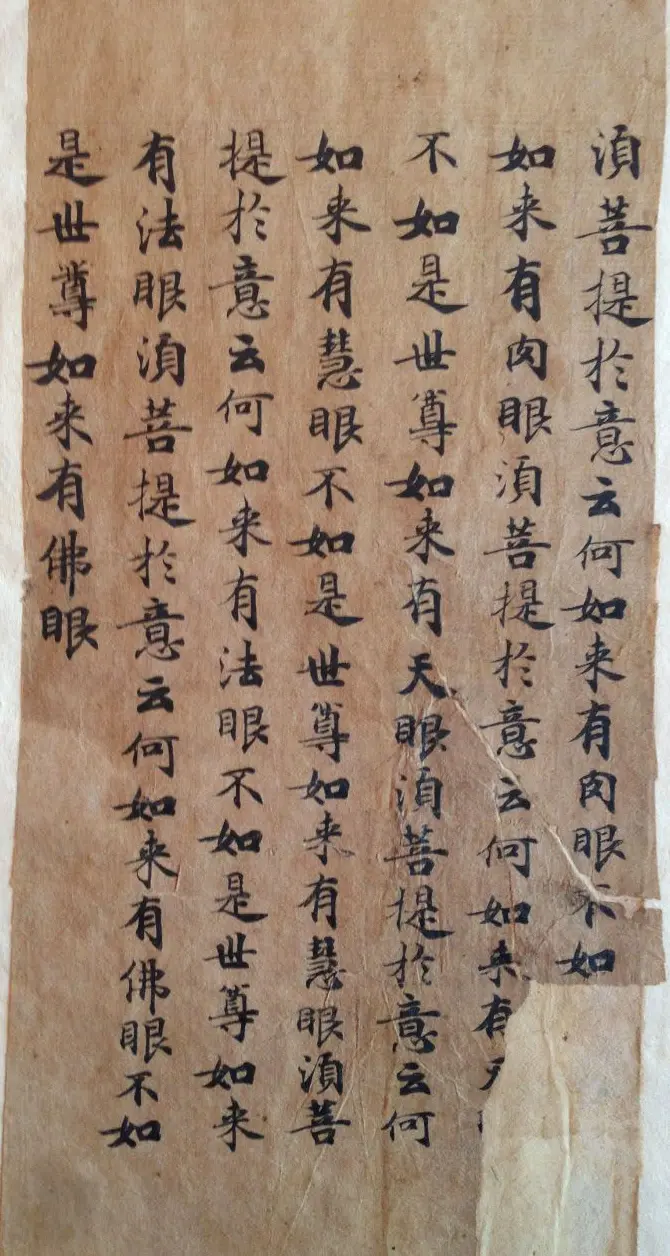 湏菩提於意云何如来有肉眼不如
如来有肉眼湏菩提於意云何如来有天
不如是世尊如来有天眼湏菩提於意云何
如来有慧眼不如是世尊如来有慧眼湏菩
提於意云何如来有法眼不如是世尊如来
有法眼湏菩提於意云何如来有佛眼不如
是世尊如来有佛眼